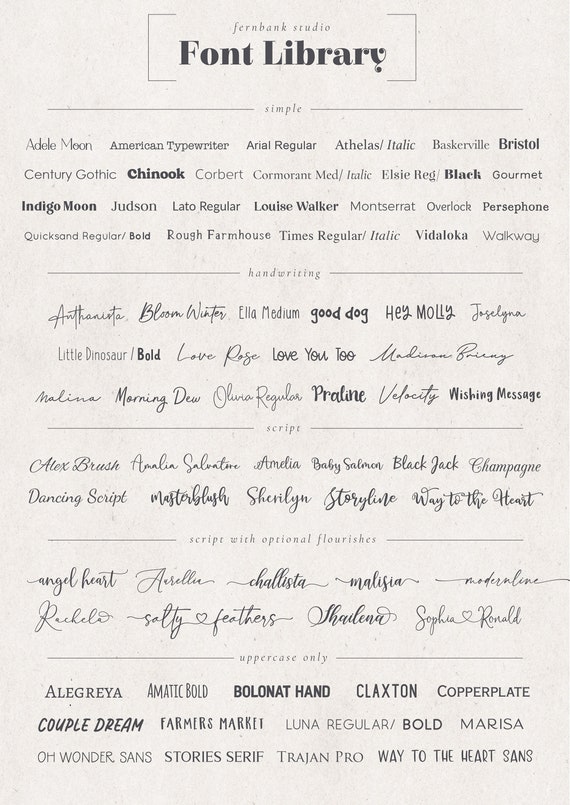 fernbank studio
Font Library
simple
Adele Moon American Typewriter Arial Regular Athelas/ Italic Baskerville Bristol
Century Gothic Chinook Corbert Cormorant Med/ Italic Elsie Reg/ Black Gourmet
Indigo Moon Judson Lato Regular Louise Walker Montserrat Overlock Persephone
Quicksand Regular/ Bold Rough Farmhouse Times Regular/ Italic Vidaloka Walkway
handwriting
Anthanista Bloom Winter Ella Medium good dog Hey Molly Joselyna
Little Dinosaur / Bold Love Rose Love You Too Madison Brieny
malina Morning Dew Olivia Regular Praline Velocity Wishing Message
script
Alex Brush Amalia Salvatore Amelia Baby Salmon Black Jack Champagne
Dancing Script masterblush Sherilyn Storyline Way to the Heart
script with optional flourishes
angel heart Aurellia challista malisia modernline
Rachela salty feathers Shailena Sophia Ronald
uppercase only
ALEGREYA AMATIC BOLD BOLONAT HAND CLAXTON COPPERPLATE
COUPLE DREAM FARMERS MARKET LUNA REGULAR/ BOLD MARISA
OH WONDER SANS STORIES SERIF TRAJAN PRO WAY TO THE HEART SANS